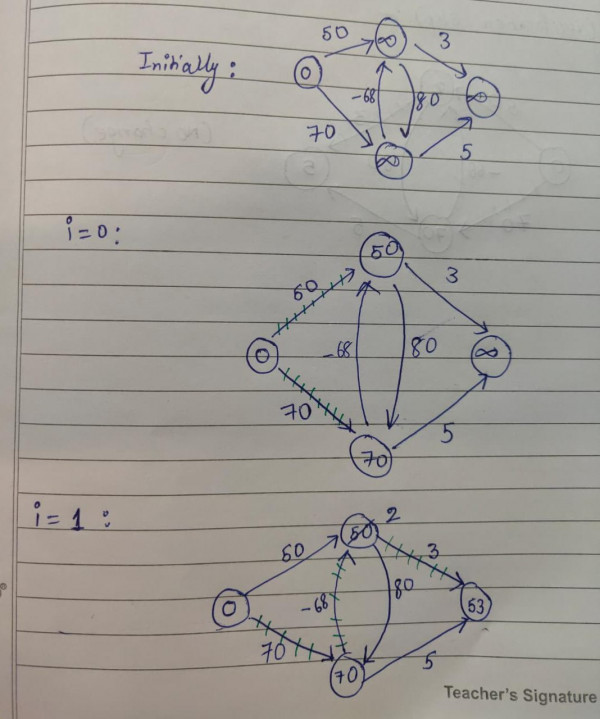 50
∞
3
Initially:
0
-68
80
∞
70
∞
5
i=0:
50
50
3
0
-68
80
∞
70
70
5
i=1:
50
2
50
3
0
-68
80
53
70
70
5
Teacher's Signature